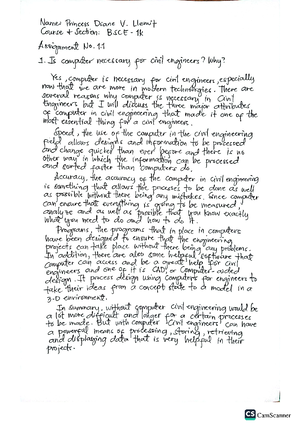 Name: Princess Diane V. Llemit
Course & Section: BSCE - 1K
Assignment No. 1.1
1. Is computer necessary for civil engineers? Why?
Yes, computer is necessary for civil engineers, especially
now that we are more in modern technologies. There are
several reasons why computer is necessary in Civil
Engineers but I will discuss the three major attributes
of computer in civil engineering that made it one of the
most essential thing for a civil engineer.
Speed, the use of the computer in the civil engineering
field allows designs and information to be processed
and change quicker than ever before and there is no
other way in which the information can be processed
and sorted faster than computers do.
Accuracy, the accuracy of the computer in civil engineering
is something that allows the processes to be done as well
as possible without there being any mistakes. Since computer
can ensure that everything is going to be measured,
analyze and as well as possible that you know exactly
what you need to do and how to do it.
Programs, the programs that in place in computers
have been designed to ensure that the engineering
projects can take place without there being any problems.
In addition, there are also some helpful software that
computer can access and be a great help for civil
engineers and one of it is CAD or Computer-aided
design. It process design using computers for engineers to
take their ideas from a concept state to a model in a
3-D environment.
In summary, without computer civil engineering would be
a lot more difficult and longer for a certain processes
to be made. But with computer civil engineers can have
a powerful means of processing, storing, retrieving
and displaying data that is very helpful in their
projects.
CS CamScanner